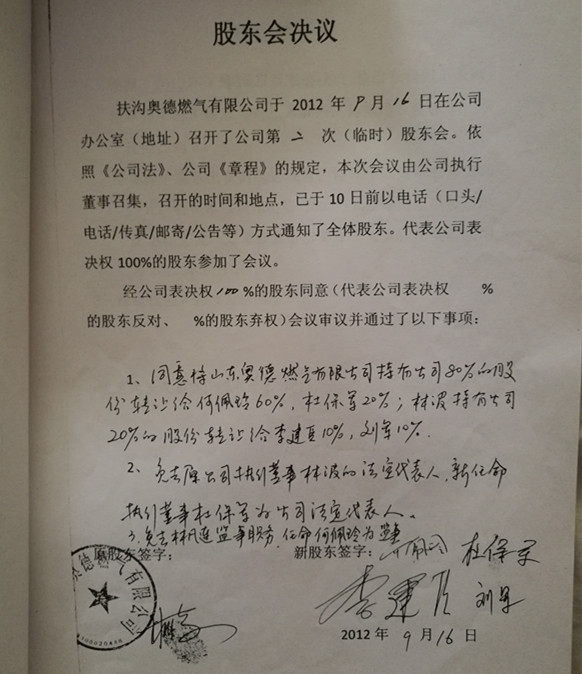 股东会决议
扶沟奥德燃气有限公司于 2012 年 9 月 16 日在公司
办公室（地址）召开了公司第 二 次（临时）股东会。依
照《公司法》、公司《章程》的规定，本次会议由公司执行
董事召集，召开的时间和地点，已于 10 日前以电话（口头/
电话/传真/邮寄/公告等）方式通知了全体股东。代表公司表
决权 100%的股东参加了会议。
经公司表决权 100 %的股东同意（代表公司表决权 %
的股东反对、 %的股东弃权）会议审议并通过了以下事项：
1、同意将山东奥德燃气有限公司持有公司80%的股
份转让给何佩玲60%，杜保军20%；林波持有公司
20%的股份转让给李建臣10%，刘军10%.
2、免去原公司执行董事林波的法定代表人，新任命
执行董事杜保军为公司法定代表人。
3、免去林凡连监事职务，任命何佩玲为监事
原股东签字： 新股东签字： 杜保军
李建臣 刘军
燃气有限公司
2012 年 9 月 16 日